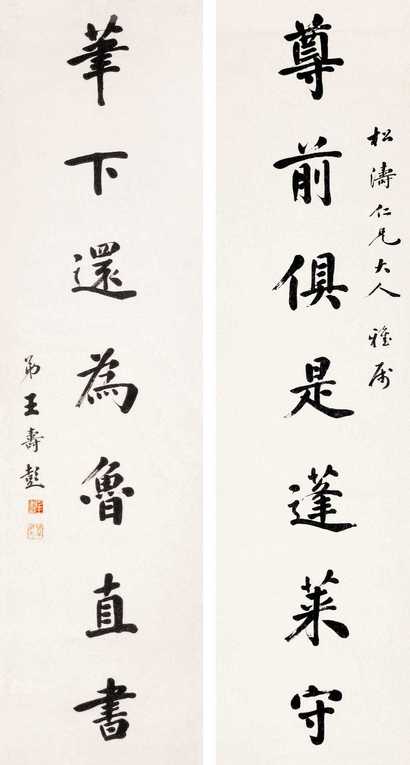 松濤仁兄大人雅屬
尊前俱是蓬萊守
筆下還為魯直書
弟王壽彭